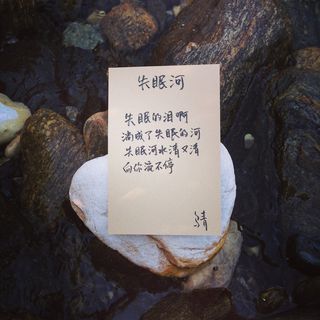 失眠河
失眠的泪啊
淌成了失眠的河
失眠河水清又清
向你流不停